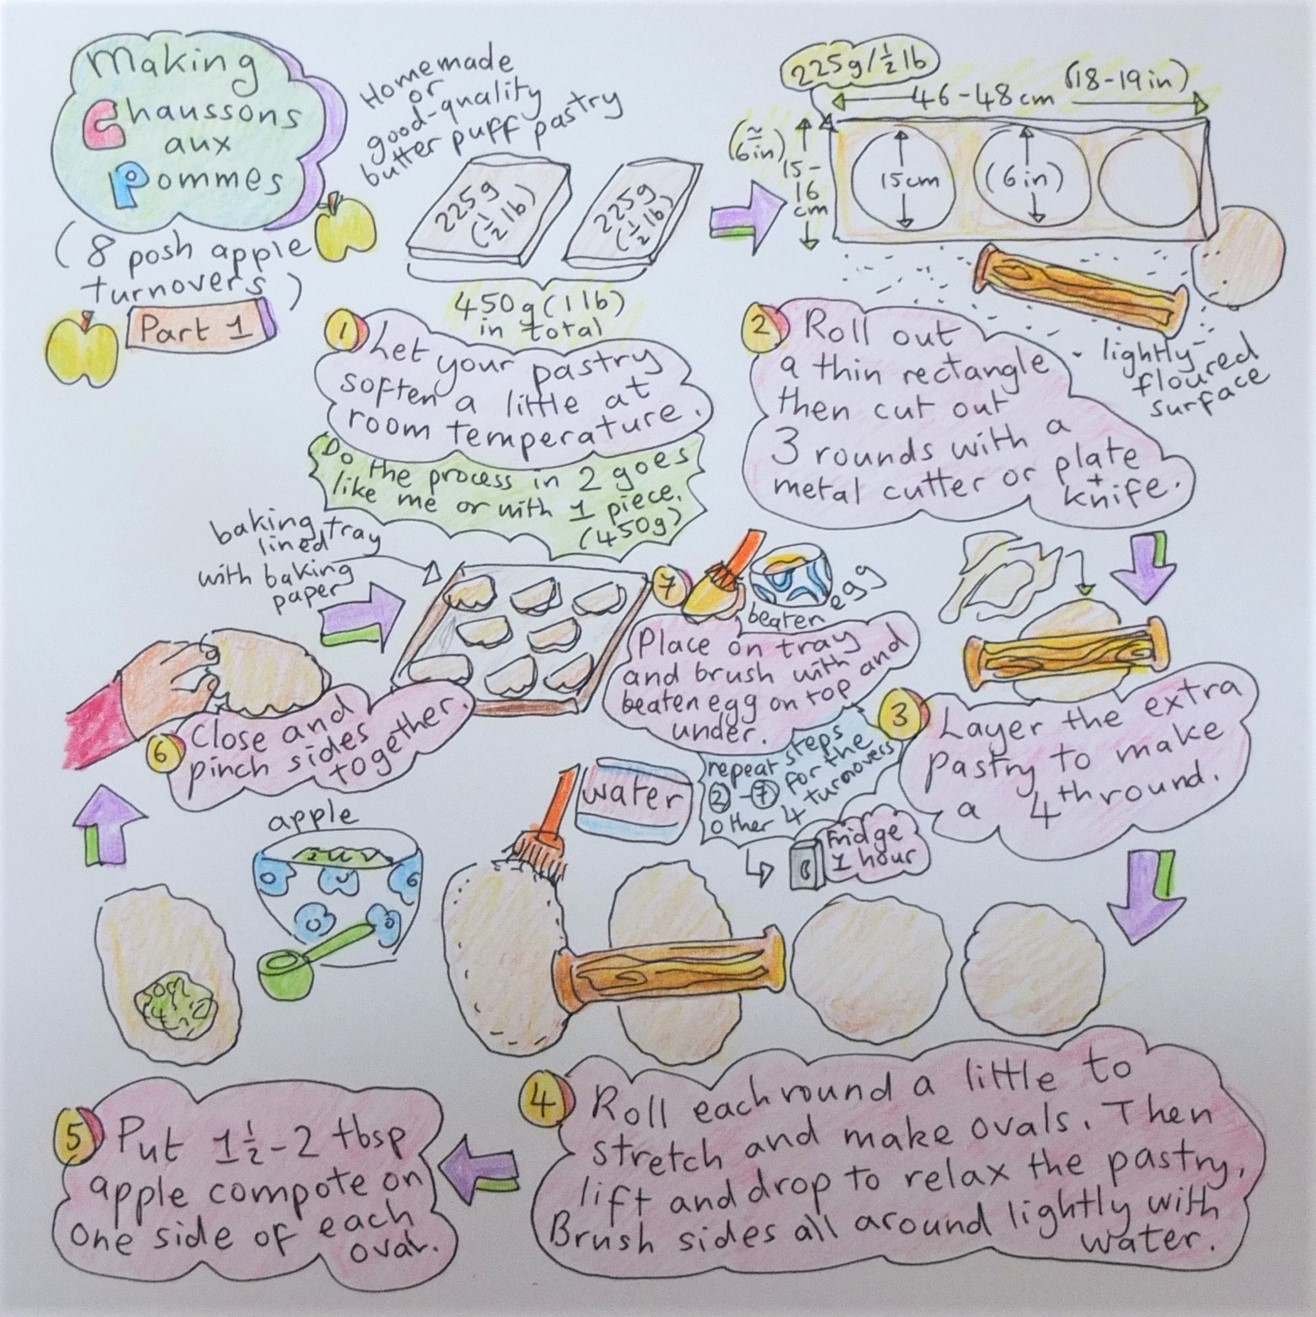 Making
Chaussons
aux
Pommes
(8 posh apple
turnovers)
Part 1
Homemade
or
good-quality
butter puff pastry
225g
(½ lb)
225g
(½ lb)
450g (1 lb)
in total
1
Let your pastry
soften a little at
room temperature.
Do the process in 2 goes
like me or with 1 piece.
(450g)
225g/½ lb
46-48cm (18-19in)
(≈
6in)
15-
16
cm
15cm
(6in)
lightly-
floured
surface
2
Roll out
a thin rectangle
then cut out
3 rounds with a
metal cutter or plate
+
knife.
3
Layer the extra
pastry to make
a 4th round.
4
Roll each round a little to
stretch and make ovals. Then
lift and drop to relax the pastry.
Brush sides all around lightly with
water.
water
5
Put 1½-2 tbsp
apple compote on
one side of each
oval.
apple
6
Close and
pinch sides
together.
baking tray
lined
with baking
paper
7
beaten egg
Place on tray
and brush with
beaten egg on top and
under.
repeat steps
2-7 for the
other 4 turnovers
Fridge
1 hour